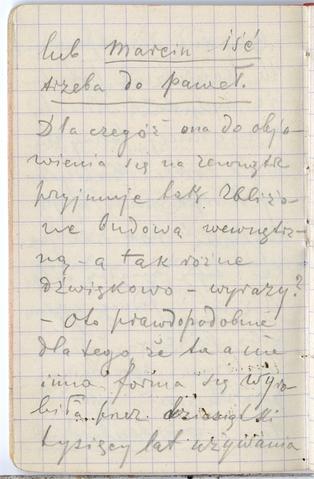 lub Marcin iść
trzeba do Paweł.
Dla czegóż ona do obja-
wienia się na zewnątrz
przyjmuje tak zbliżo-
ne budową wewnętrz-
ną - a tak różne
dźwiękowo - wyrazy?
- Oto prawdopodobnie
dla tego że ta a nie
inna forma się wyro-
biła przez dziesiątki
tysięcy lat używania